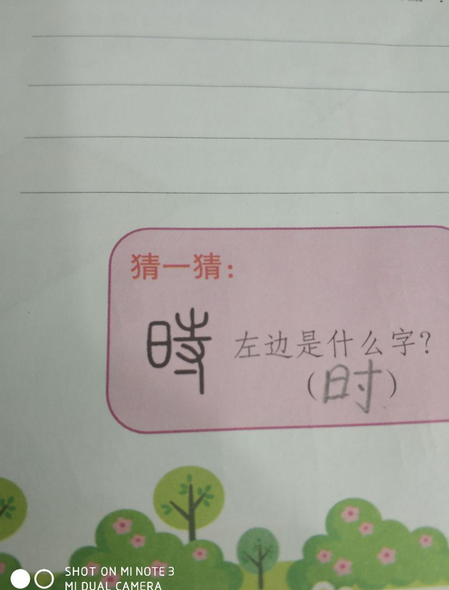 猜一猜：
時 左边是什么字？
（时）
SHOT ON MI NOTE 3
MI DUAL CAMERA